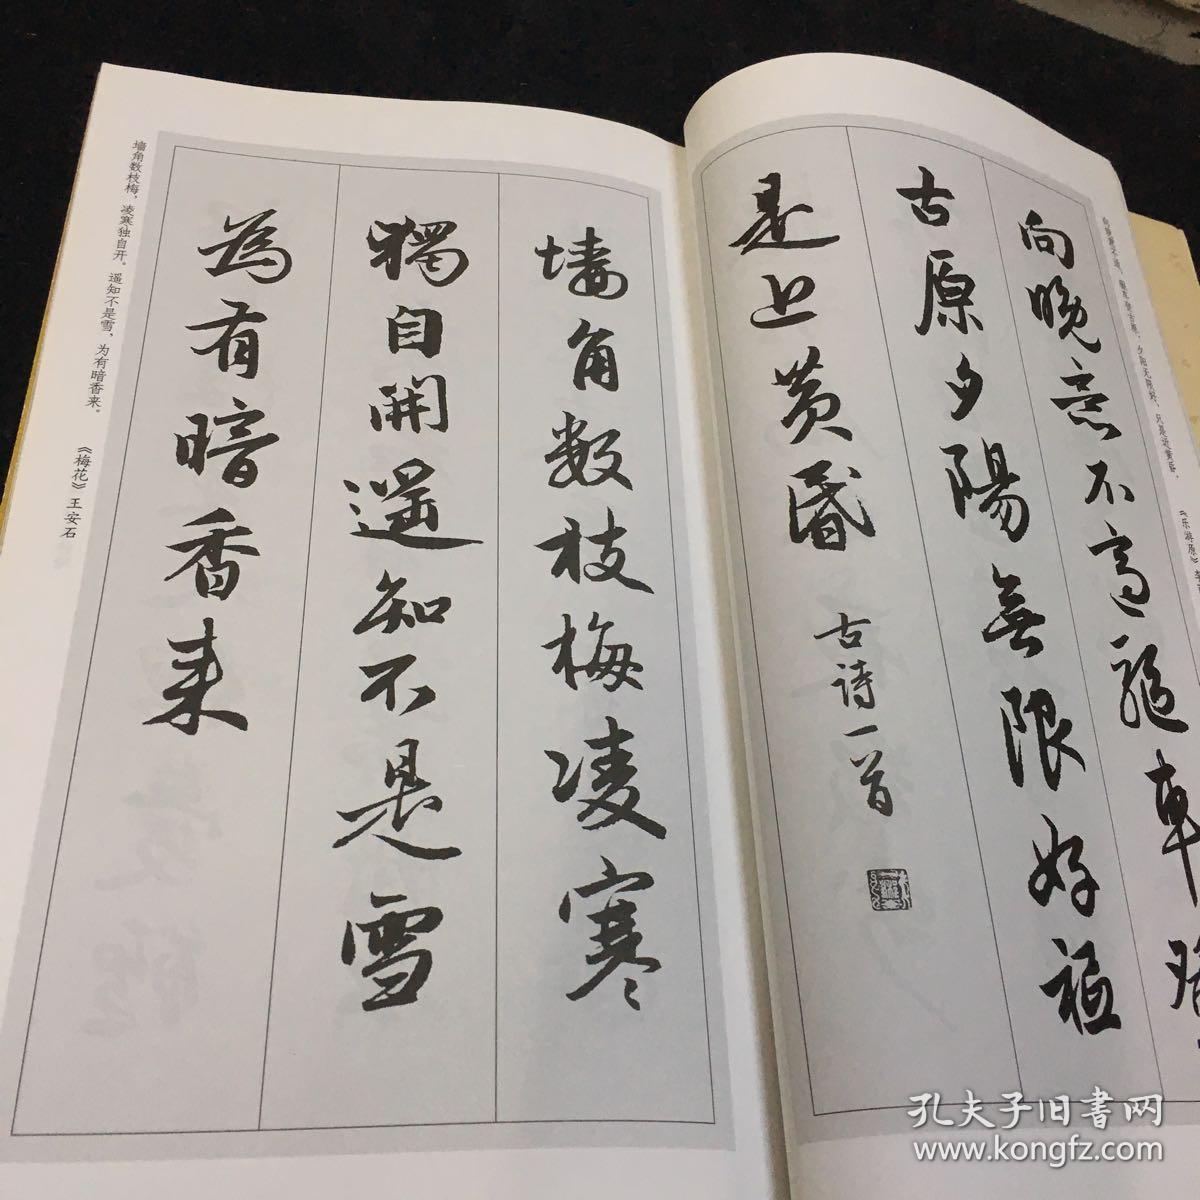 向晚意不適驅車登
古原夕陽無限好祇
是近黄昏
古诗一首
向晚意不适，驱车登古原。夕阳无限好，只是近黄昏。
《乐游原》李
墙角数枝梅凌寒
獨自開遥知不是雪
為有暗香来
墙角数枝梅，凌寒独自开。遥知不是雪，为有暗香来。
《梅花》王安石
孔夫子旧書网
www.kongfz.com